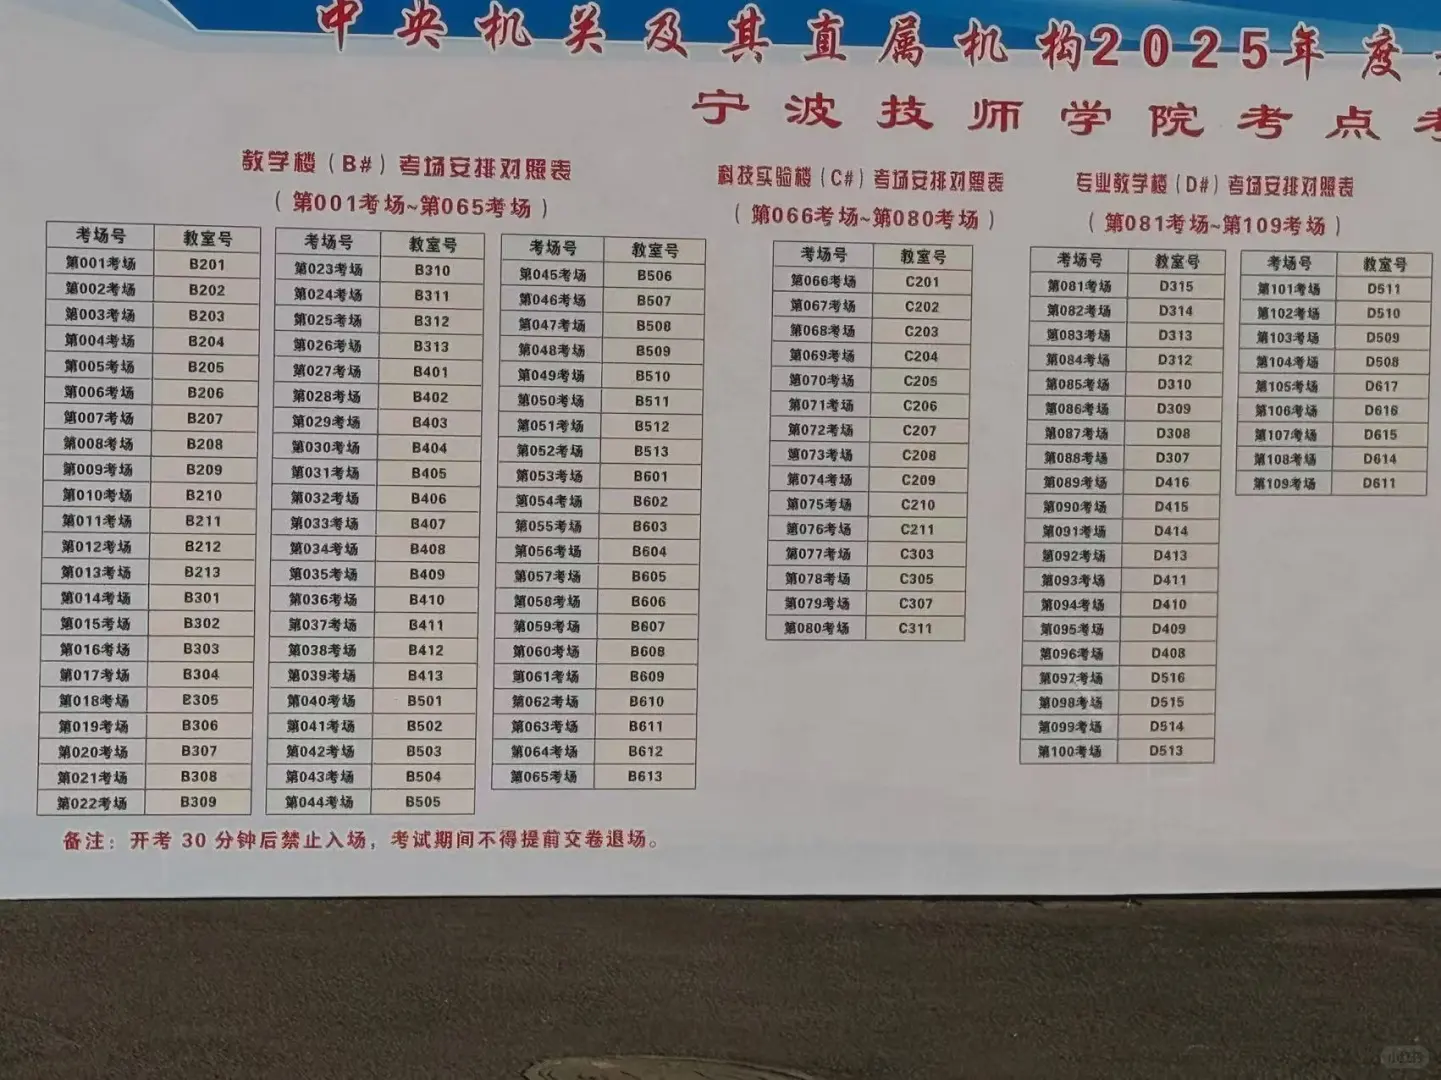 中央机关及其直属机构2025年度
宁波技师学院考点
教学楼（B#）考场安排对照表
（第001考场~第065考场）
考场号 教室号
第001考场 B201
第002考场 B202
第003考场 B203
第004考场 B204
第005考场 B205
第006考场 B206
第007考场 B207
第008考场 B208
第009考场 B209
第010考场 B210
第011考场 B211
第012考场 B212
第013考场 B213
第014考场 B301
第015考场 B302
第016考场 B303
第017考场 B304
第018考场 B305
第019考场 B306
第020考场 B307
第021考场 B308
第022考场 B309
考场号 教室号
第023考场 B310
第024考场 B311
第025考场 B312
第026考场 B313
第027考场 B401
第028考场 B402
第029考场 B403
第030考场 B404
第031考场 B405
第032考场 B406
第033考场 B407
第034考场 B408
第035考场 B409
第036考场 B410
第037考场 B411
第038考场 B412
第039考场 B413
第040考场 B501
第041考场 B502
第042考场 B503
第043考场 B504
第044考场 B505
考场号 教室号
第045考场 B506
第046考场 B507
第047考场 B508
第048考场 B509
第049考场 B510
第050考场 B511
第051考场 B512
第052考场 B513
第053考场 B601
第054考场 B602
第055考场 B603
第056考场 B604
第057考场 B605
第058考场 B606
第059考场 B607
第060考场 B608
第061考场 B609
第062考场 B610
第063考场 B611
第064考场 B612
第065考场 B613
科技实验楼（C#）考场安排对照表
（第066考场~第080考场）
考场号 教室号
第066考场 C201
第067考场 C202
第068考场 C203
第069考场 C204
第070考场 C205
第071考场 C206
第072考场 C207
第073考场 C208
第074考场 C209
第075考场 C210
第076考场 C211
第077考场 C303
第078考场 C305
第079考场 C307
第080考场 C311
专业教学楼（D#）考场安排对照表
（第081考场~第109考场）
考场号 教室号
第081考场 D315
第082考场 D314
第083考场 D313
第084考场 D312
第085考场 D310
第086考场 D309
第087考场 D308
第088考场 D307
第089考场 D416
第090考场 D415
第091考场 D414
第092考场 D413
第093考场 D411
第094考场 D410
第095考场 D409
第096考场 D408
第097考场 D516
第098考场 D515
第099考场 D514
第100考场 D513
考场号 教室号
第101考场 D511
第102考场 D510
第103考场 D509
第104考场 D508
第105考场 D617
第106考场 D616
第107考场 D615
第108考场 D614
第109考场 D611
备注：开考 30 分钟后禁止入场，考试期间不得提前交卷退场。
小红书